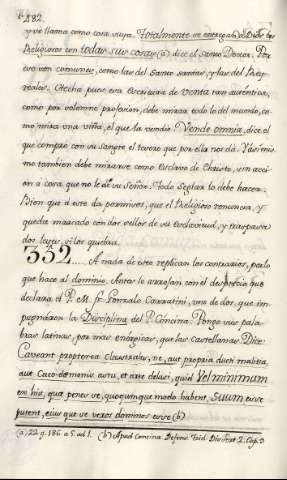 482.
y se llama como cosa suya. Totalmente se entregan à Dios los
Religiosos con todas sus cosas (a) dice el santo Doctor. Por
eso son comunes, como las del Santo y las del Rey
reales. Hecha pues esa Escritura de venta tan autentica,
como por solemne profesion, debe mirar todo lo del mundo, co-
mo mira una viña, el que la vendió. Vende omnia, dice el
que compró con su sangre el tesoro que por ella nos dà. Y asimis-
mo tambien debe mirarse como Esclavo de Christo, sin acci-
on à cosa, que no le dè su Señor. Todo seglar lo debe hacer.
Bien que à este da permisos, que el Religioso renuncia, y
queda marcado con dos sellos de su esclavitud, y traspasa
dos leyes si los quebra.
332.... A nada de esto replican los contrarios, por lo
que hace al dominio. Antes lo arreglan con el desprecio que
declara el P. M. Fr. Gonzalo Carratini, uno de dos, que im-
pugnaron la Disciplina del P. Cóncina. Pongo sus pala-
bras latinas, por mas enérgicas, que las castellanas. Dice:
Caveant propterea claustrales, ne, aut propria ducti malitia,
aut Caco-demonis astu, et arte delusi, quid vel minimum
in his, quæ penes se, quoquimque modo habent, suum esse
putent, eius que se veros dominos esse (b)
(a) 22 q. 186 a 5. ad 1. (b) Apud Concina Defens. Cap. 3